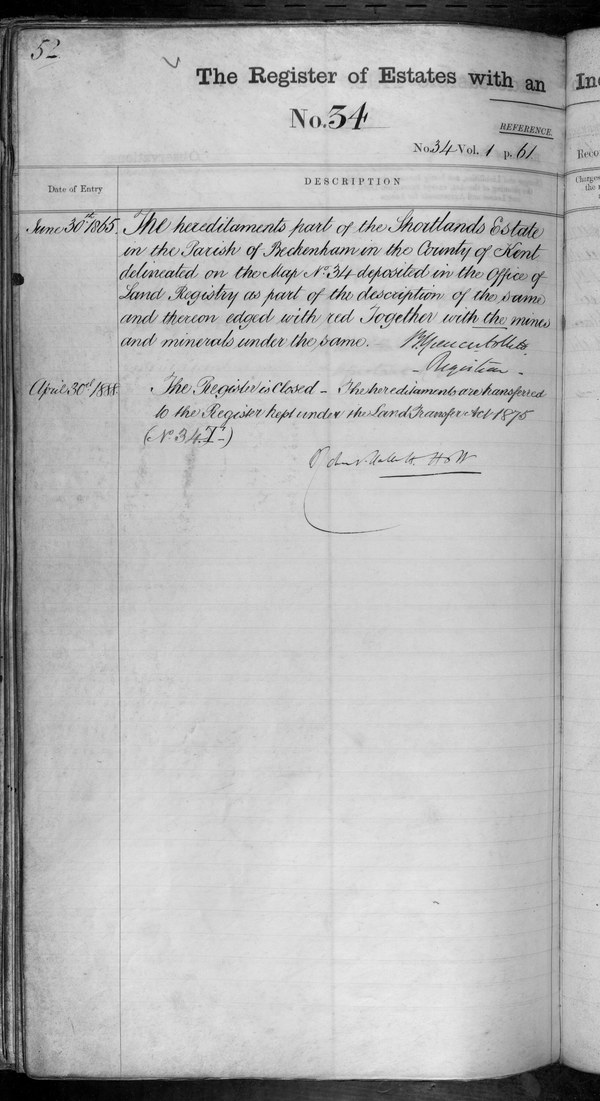 52
The Register of Estates with an
No. 34
REFERENCE.
No. 34 Vol. 1 p. 61
Date of Entry
DESCRIPTION
June 30th 1865. The hereditaments part of the Shortlands Estate
in the Parish of Beckenham in the County of Kent
delineated on the Map No. 34 deposited in the Office of
Land Registry as part of the description of the same
and thereon edged with red Together with the mines
and minerals under the same.
Registrar
April 30th 1888. The Register is Closed - The hereditaments are transferred
to the Register kept under the Land Transfer Act 1875
(No. 34.T.)
Reco
Charges
the